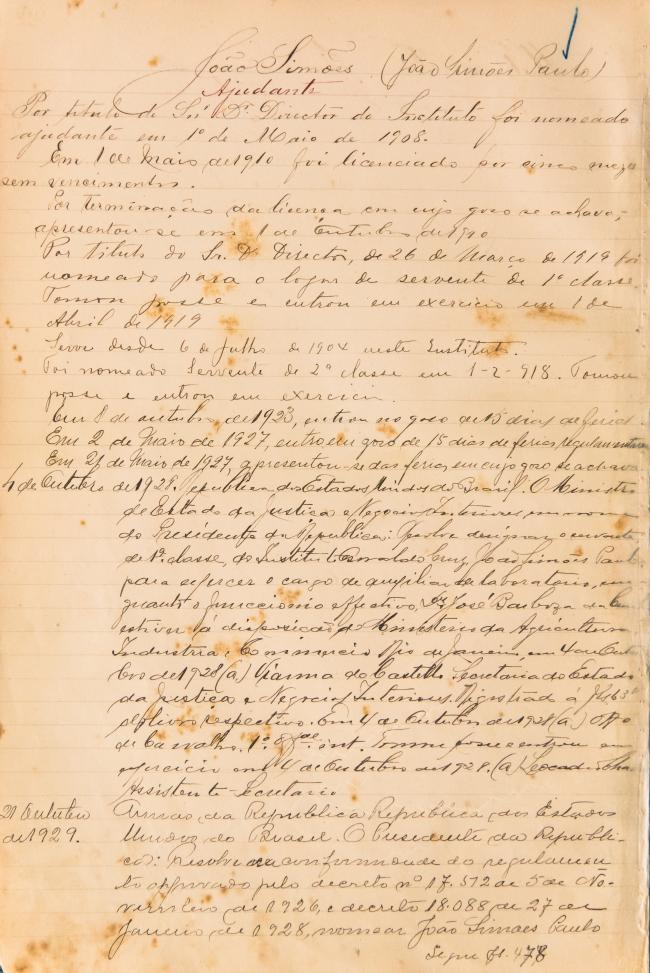 João Simões (João Simões Paulo)
Ajudante
Por titulo do Snr. Dr. Director do Instituto foi nomeado
ajudante em 1º de Maio de 1908.
Em 1 de Maio de 1910 foi licenciado por cinco mezes
sem vencimentos.
Por terminação da licença em cujo goso se achava,
apresentou-se em 1 de Outubro de 1910
Por titulo do Sr. Dr. Director, de 26 de Março de 1919 foi
nomeado para o logar de servente de 1ª classe.
Tomou posse e entrou em exercicio em 1 de
Abril de 1919
Serve desde 6 de Julho de 1904 neste Instituto.
Foi nomeado Servente de 2ª classe em 1-2-918. Tomou
posse e entrou em exercicio.
Em 8 de outubro de 1923, entrou no goso de 15 dias de ferias.
Em 2 de Maio de 1927, entro em goso de 15 dias de ferias regulamentares
Em 21 de Maio de 1927, apresentou-se das ferias, em cujo goso se achava
4 de Outubro de 1928. Republica dos Estados Unidos do Brasil. O Ministro
de Estado da Justiça e Negocios Interiores, em nome
do Presidente da Republica: Resolve designar o servente
de 1ª classe, do Instituto Oswaldo Cruz, João Simões Paulo
para exercer o cargo de auxiliar de laboratorio, em
quanto o funccionario effectivo, José Barboza da
estiver á disposição do Ministerio da Agricultura
Industria e Commercio Rio de Janeiro, em 4 de Outu
bro de 1928 (a) Vianna do Castello. Secretaria de Estado
da Justiça e Negocios Interiores. Registrado á fl. 63
do livro respectivo. Em 4 de Outubro de 1928 (a)
de Carvalho. 1º int. Tomou posse e entrou em
exercicio em 4 de Outubro de 1928. (a)
Assistente Secretario
21 Outubro de 1929. Armas da Republica Republica dos Estados
Unidos do Brasil. O Presidente da Republi-
ca: Resolve na conformidade do regulamen
to approvado pelo decreto nº 17.512 de 5 de No-
vembro de 1926, e decreto 18.088 de 27 de
Janeiro de 1928, nomear João Simões Paulo
Segue fl. 478